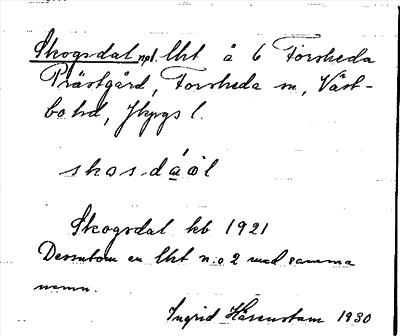 Skogsdal npl. lht å 6 Forsheda
Prästgård, Forsheda sn, Väst-
bo hd, Jkpgs l.
skosdáòl
Skogsdal kb 1921
Dessutom en lht n:o 2 med samma
namn.
Ingrid Härenstam 1930